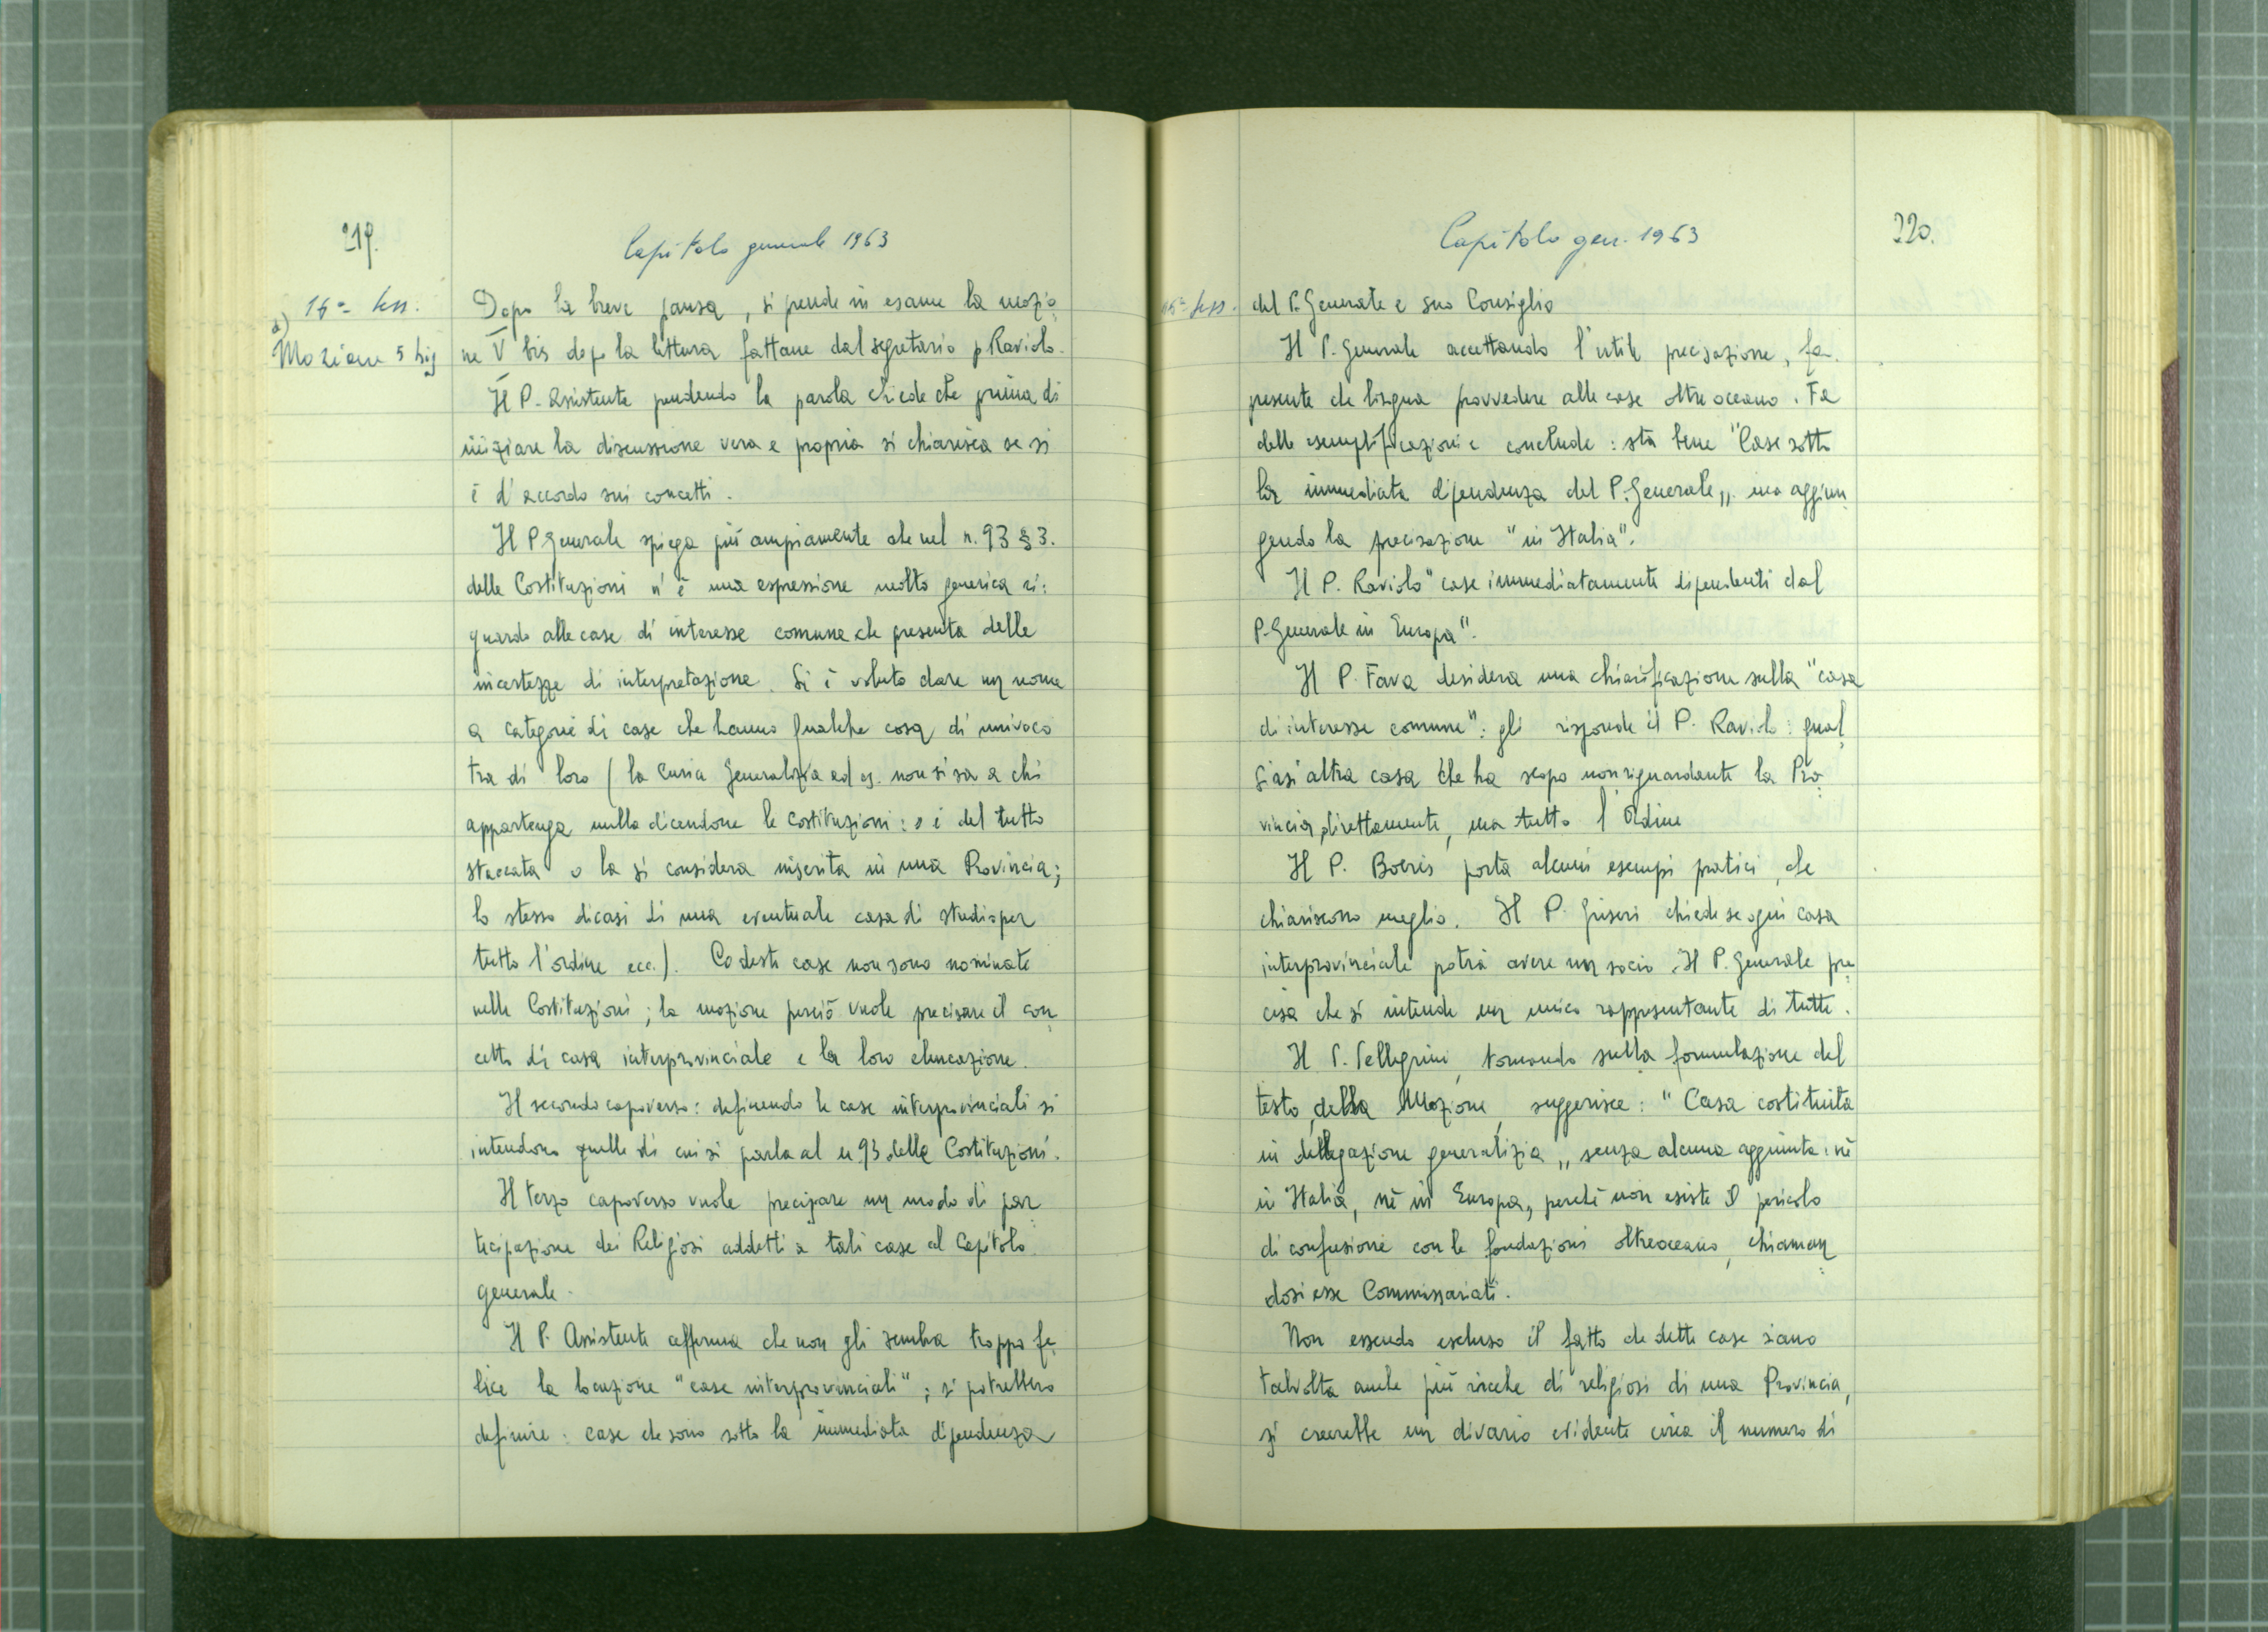 219.
Capitolo generale 1963
16ª sess.
a)
Mozione 5 bis
Dopo la breve pausa, si prende in esame la mozio-
ne V bis dopo la lettura fattane dal segretario p Raviolo.
Il P. Assistente prendendo la parola chiede che prima di
iniziare la discussione vera e propria si chiarisca se si
è d'accordo sui concetti.
Il P Generale spiega più ampiamente che nel n. 93 § 3.
delle Costituzioni v'è una espressione molto generica ri:
guardo alle case di interesse comune che presenta delle
incertezze di interpretazione. Si è voluto dare un nome
a categorie di case che hanno qualche cosa di univoco
tra di loro (la Curia Generalizia ad es. non si sa a chi
appartenga nulla dicendone le Costituzioni: o è del tutto
staccata o la si considera inserita in una Provincia;
lo stesso dicasi di una eventuale casa di studio per
tutto l'ordine ecc.). Codeste case non sono nominate
nelle Costituzioni; la mozione perciò vuole precisare il con
cetto di casa interprovinciale e la loro elencazione.
Il secondo capoverso: definendo le case interprovinciali si
intendono quelle di cui si parla al n 93 delle Costituzioni.
Il terzo capoverso vuole precisare un modo di par
tecipazione dei Religiosi addetti a tali case al Capitolo
generale.
Il P. Assistente afferma che non gli sembra troppo fe
lice la locuzione "case interprovinciali"; si potrebbero
definire: case che sono sotto la immediata dipendenza
220.
Capitolo gen. 1963
sess.
del P. Generale e suo Consiglio
Il P. Generale accettando l'utile precisazione, fa
presente che bisogna provvedere alle case oltre oceano. Fa
delle esemplificazioni e conclude: sta bene "Case sotto
la immediata dipendenza del P. Generale" ma aggiun
gendo la precisazione "in Italia".
Il P. Raviolo "case immediatamente dipendenti dal
P. Generale in Europa".
Il P. Fava desidera una chiarificazione sulla "casa
di interesse comune": gli risponde il P. Raviolo: qual
siasi altra casa che ha scopo non riguardante la Pro
vincia direttamente, ma tutto l'Ordine
Il P. Boeris porta alcuni esempi pratici, che
chiariscono meglio. Il P. Griseri chiede se ogni casa
interprovinciale potrà avere un socio. Il P. Generale pre
cisa che si intende un unico rappresentante di tutte.
Il P. Pellegrini, tornando sulla formulazione del
testo, della Mozione, suggerisce: "Casa costituita
in delegazione generalizia" senza alcuna aggiunta: nè
in Italia, nè in Europa, perchè non esiste il pericolo
di confusione con le fondazioni oltreoceano, chiaman
dosi esse Commissariati.
Non essendo escluso il fatto che dette case siano
talvolta anche più ricche di religiosi di una Provincia,
si creerebbe un divario evidente circa il numero di